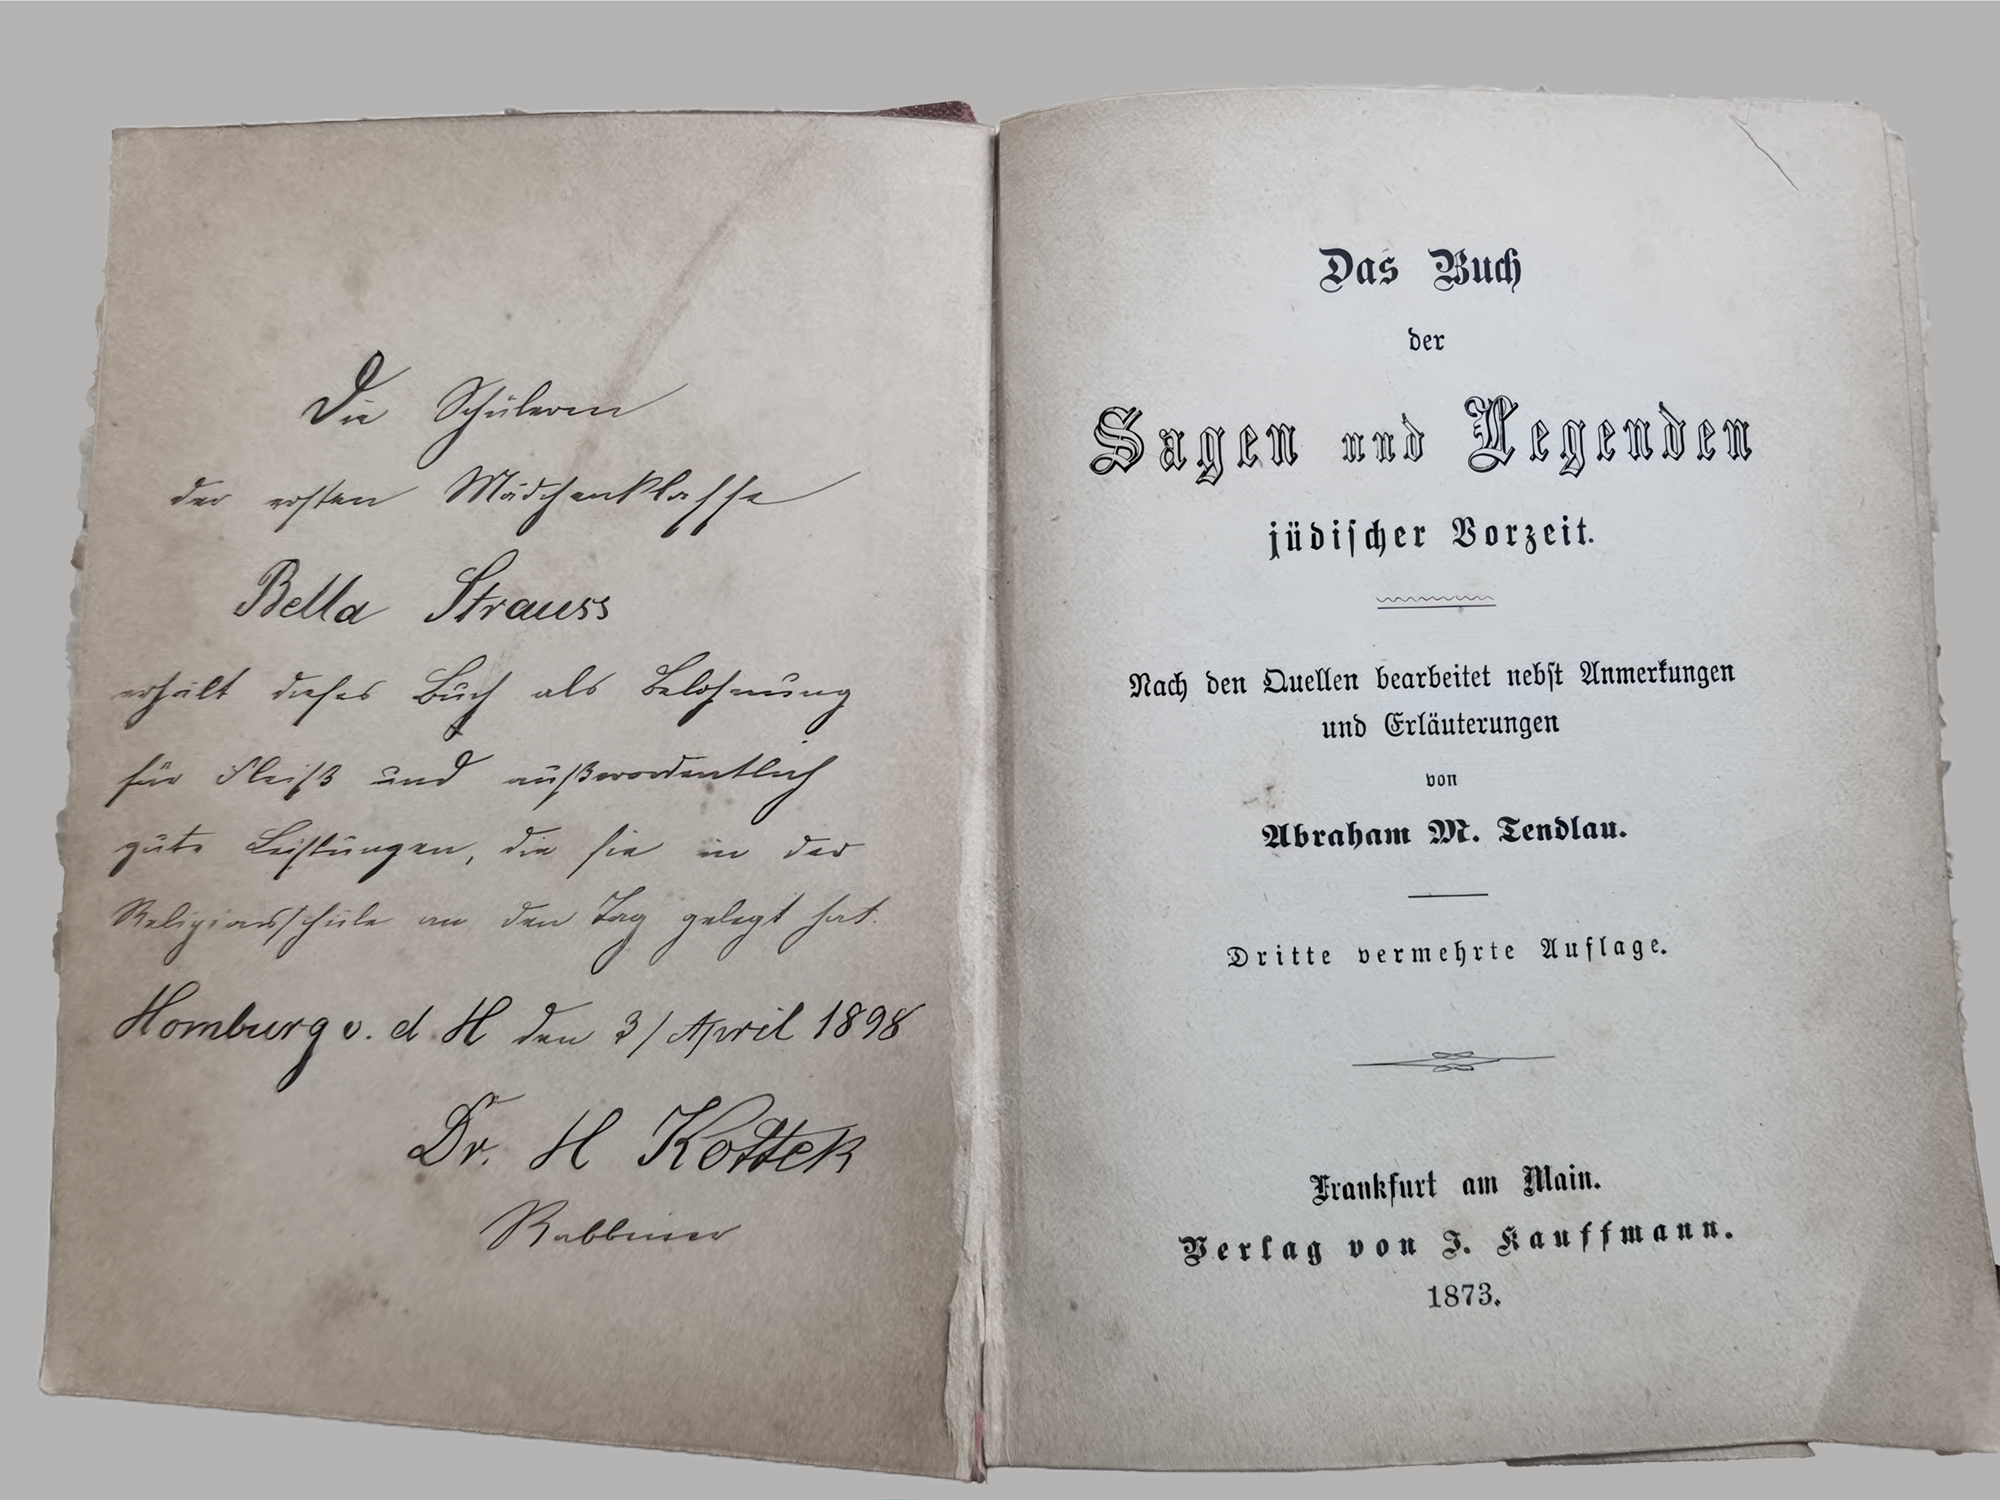 Die Schülerin
der ersten Mädchenklasse
Bella Strauss
erhält dieses Buch als Belohnung
für Fleiß und außerordentlich
gute Leistungen, die sie in der
Religionsschule an den Tag gelegt hat.
Homburg v. d. H den 3/ April 1898
Dr. H Kottek
Rabbiner
Das Buch
der
Sagen und Legenden
jüdischer Vorzeit.
Nach den Quellen bearbeitet nebst Anmerkungen
und Erläuterungen
von
Abraham M. Tendlau.
Dritte vermehrte Auflage.
Frankfurt am Main.
Verlag von J. Kauffmann.
1873.